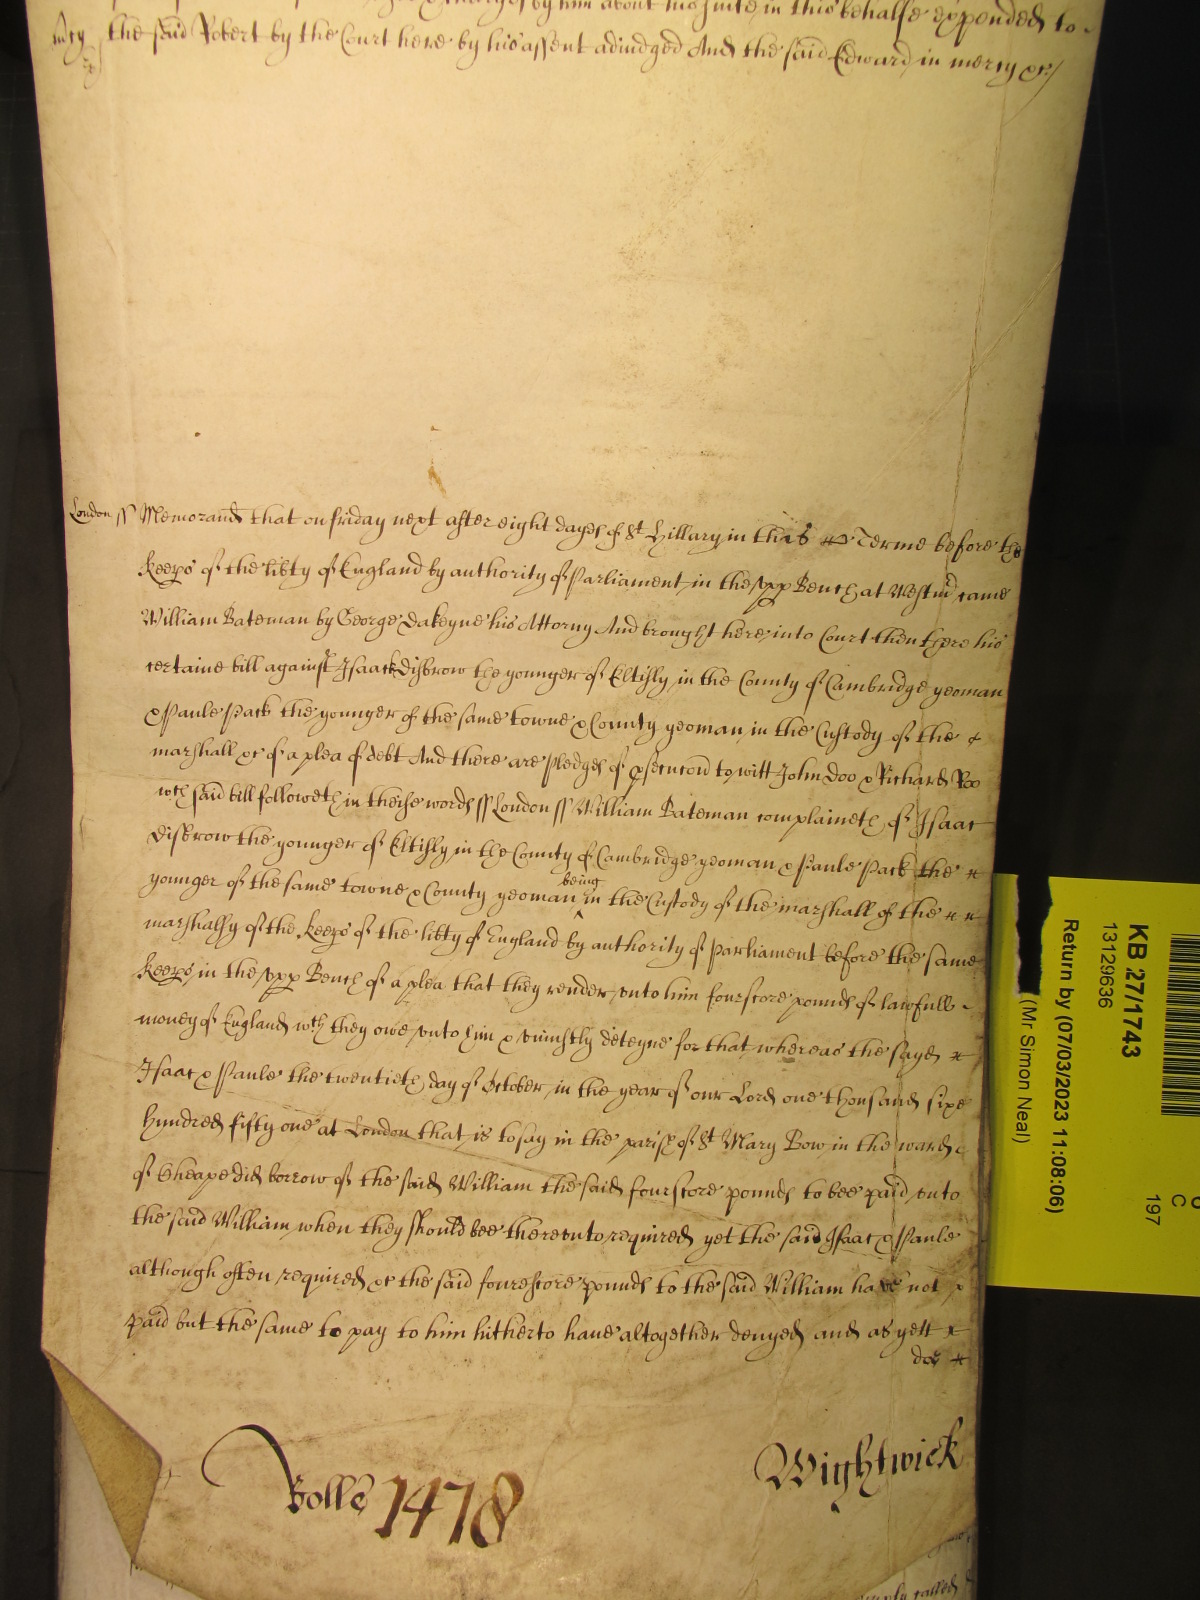 by him about his suite in this behalfe expended to
the said Robert by the Court here by his assent adiudged And the said Edward in mercy &c
mcy
London ss Memorand that on friday next after eight dayes of St Hillary in this Terme before the
Keeps of the libty of England by authority of Parliament in the vpp Bench at Westm came
William Bateman by George Dakeyne his Attorny And brought here into Court then there his
certaine bill against Isaack Disbrow the younger of Eltisly in the County of Cambridge yeoman
& Paule Pack the younger of the same towne & County yeoman in the Custody of the
marshall &c of a plea of debt And there are Pledges of psecucon to witt John Doo & Richard Roo
wch said bill followeth in theise words ss London ss William Bateman complaineth of Isaac
Disbrow the younger of Eltisly in the County of Cambridge yeoman & Paule Pack the
younger of the same towne & County yeoman being in the Custody of the marshall of the
marshalsy of the Keeps of the libty of England by authority of Parliament before the same
Keeps in the vpp Bench of a plea that they render vnto him fourscore pounds of lawfull
money of England wch they owe vnto him & vniustly deteyne for that whereas the sayd
Isaac & Paule the twentieth day of October in the year of our Lord one thousand sixe
hundred fifty one at London that is to say in the parish of St Mary Bow in the ward
of Cheape did borrow of the said William the said fourscore pounds to bee paid vnto
the said William when they should bee therevnto required yet the said Isaac & Paule
although often required &c the said fourescore pounds to the said William have not
paid but the same to pay to him hitherto have altogether denyed and as yett
doe
Rolle 1478
Wightwick
KB 27/1743
13129636
Return by (07/03/2023 11:08:06)
(Mr Simon Neal)
C
197